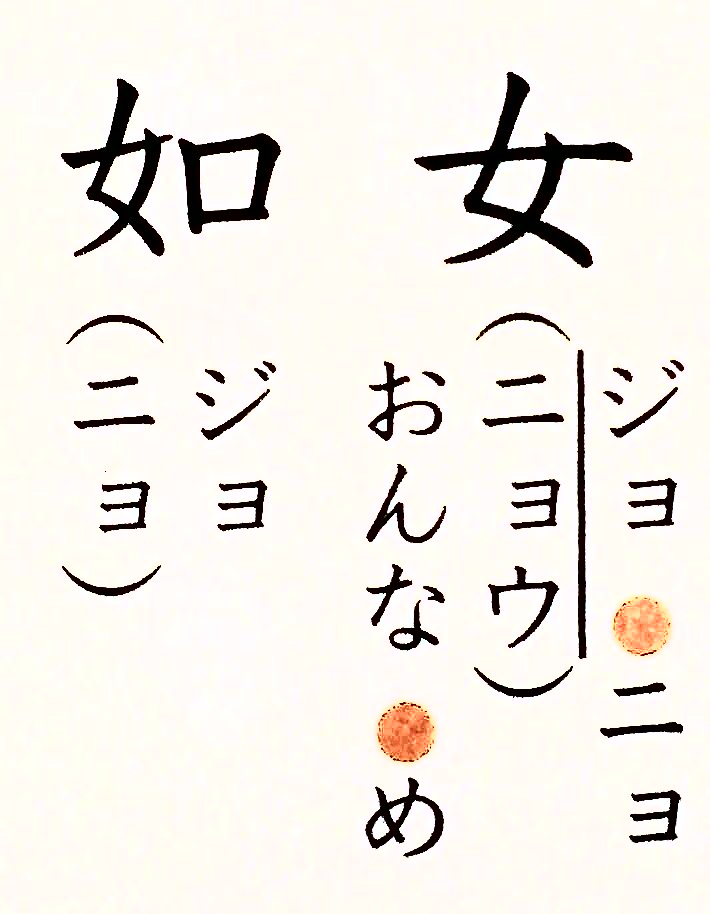 女
ジョ●ニョ
（ニョウ）
おんな●め
如
ジョ
（ニョ）